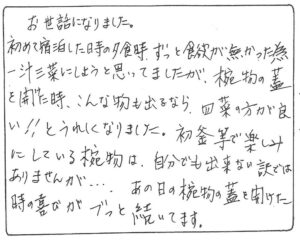 お世話になりました。
初めて宿泊した日時の夕食時、ずっと食欲が無かった為
一汁三菜にしようと思ってましたが、椀物の蓋
を開けた時、こんな物も出るなら、四菜の方が良
い!!とうれしくなりました。初釜等で楽しみ
にしている椀物は、自分でも出来ない訳では
ありませんが…。あの日の椀物の蓋を開けた
時の喜びが ずっと続いてます。